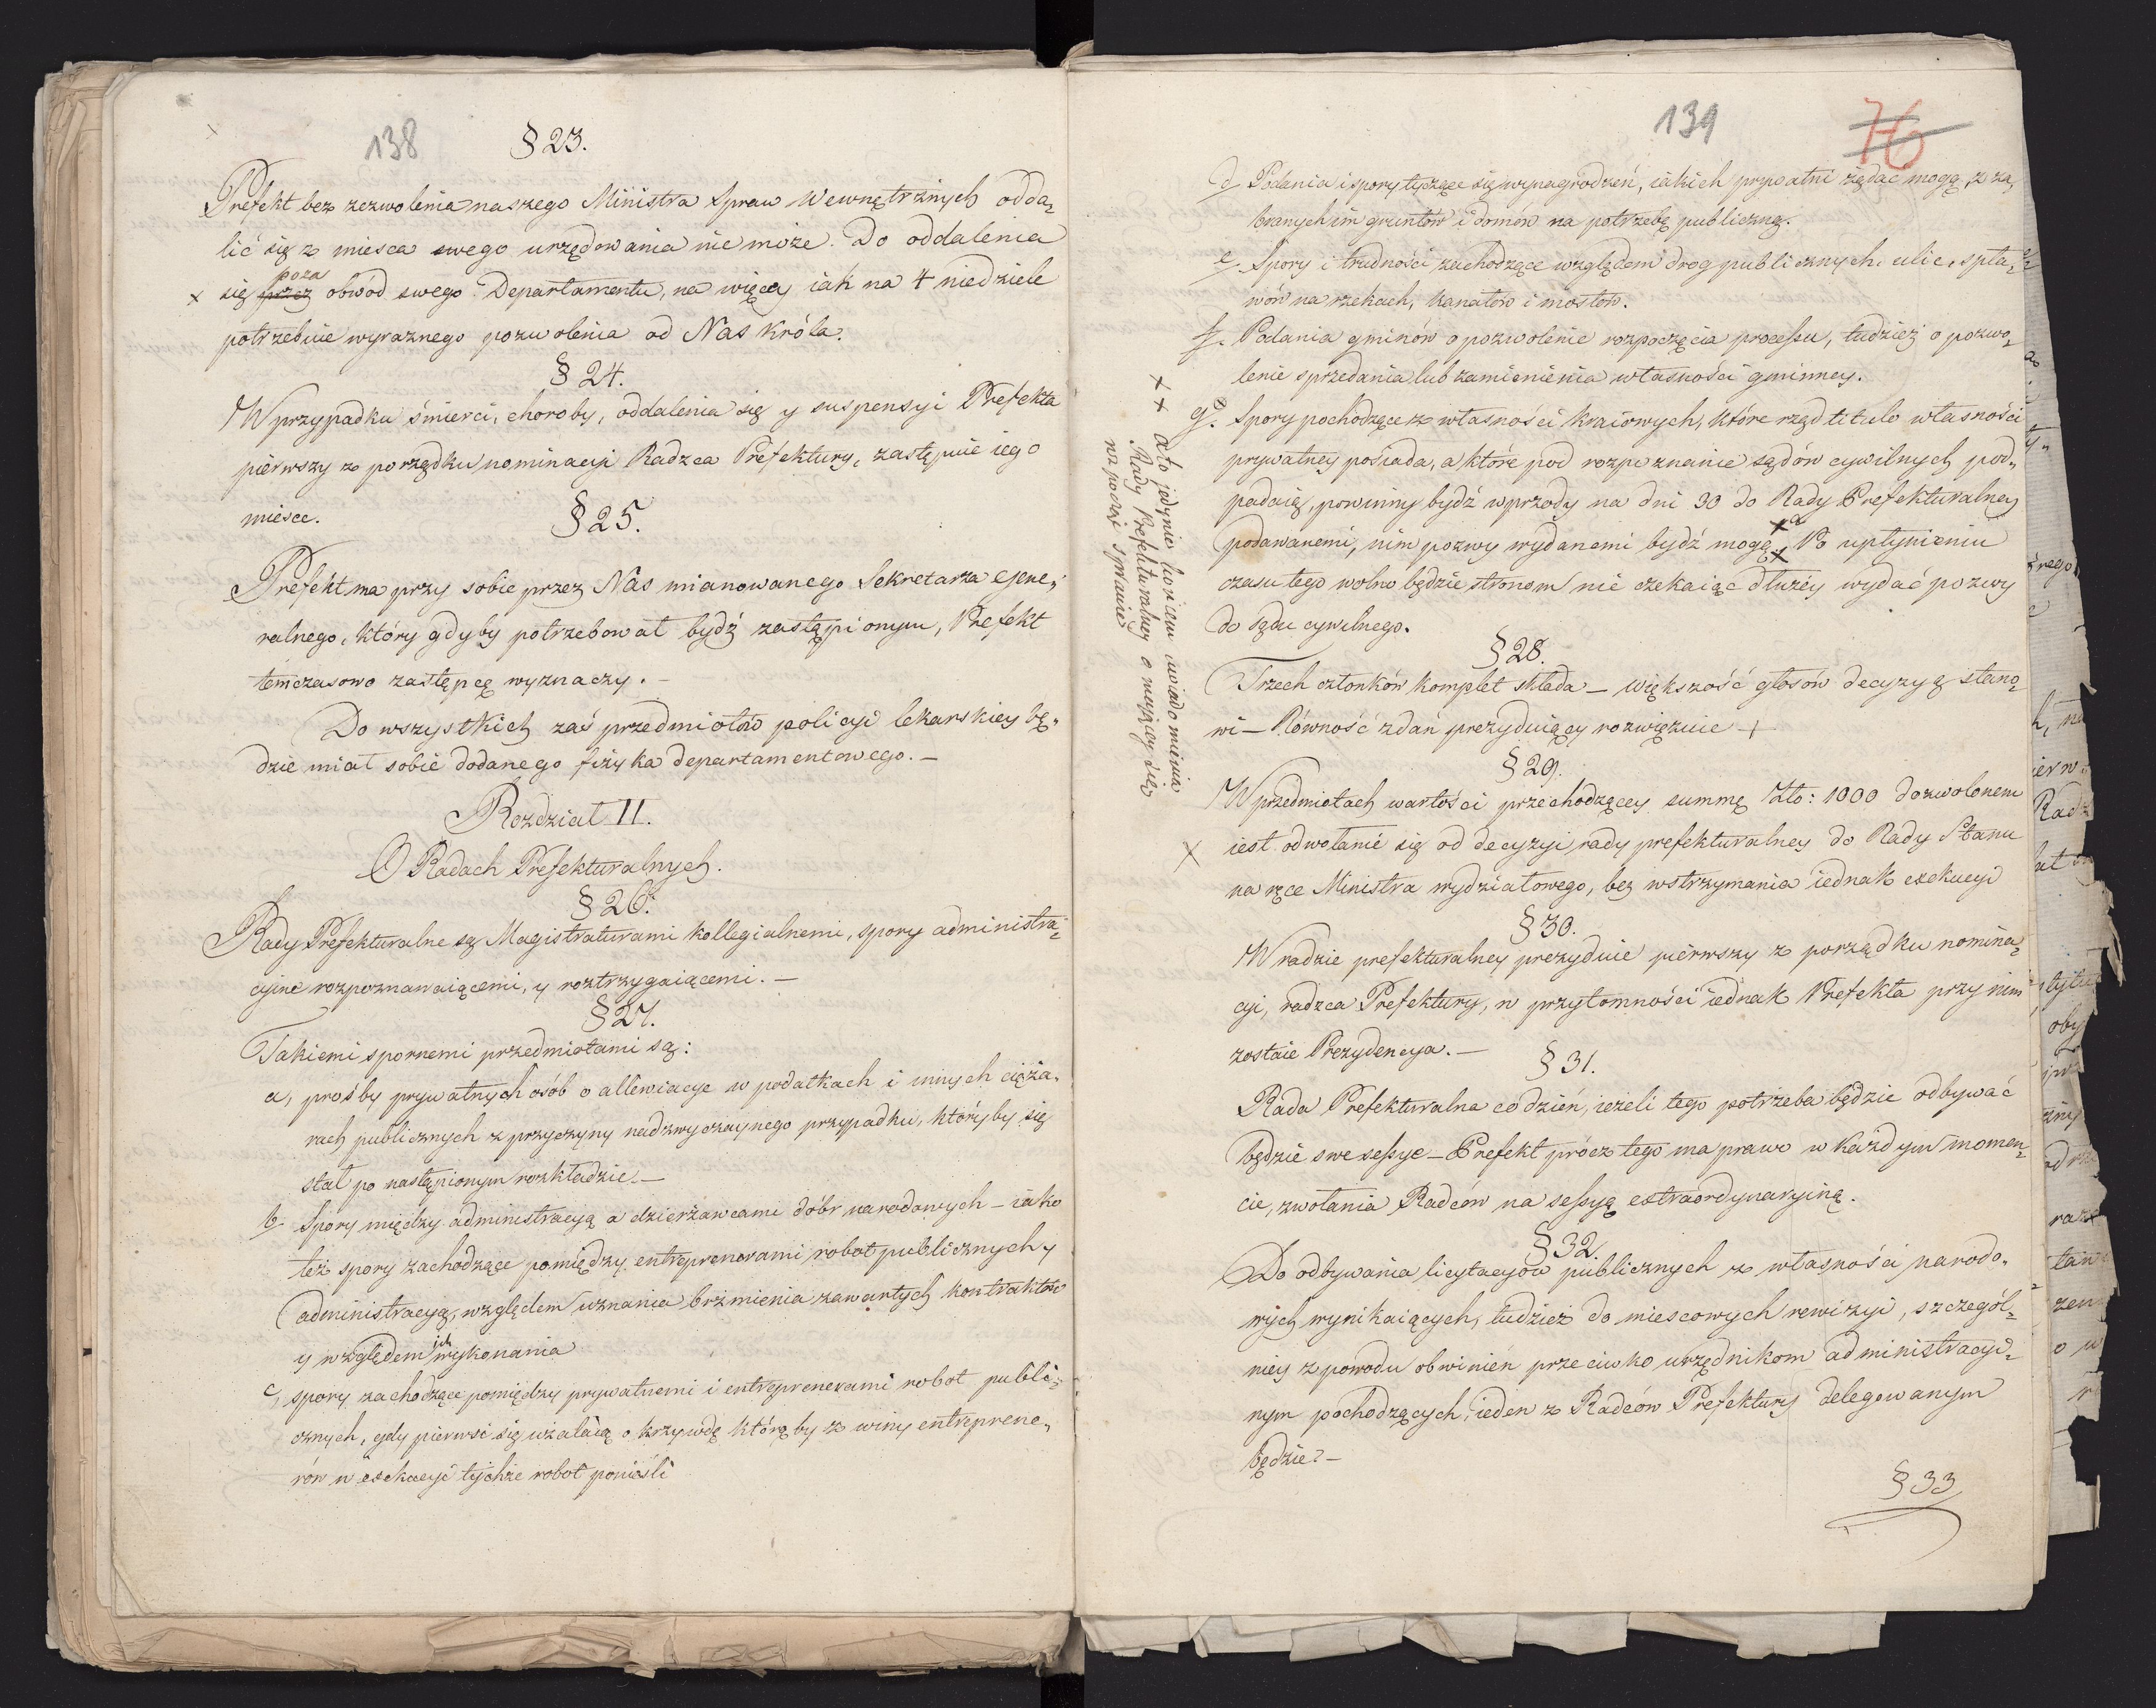 138
§ 23.
Prefekt bez zezwolenia naszego Ministra Spraw Wewnętrznych odda„
lić się z miesca swego urzędowania nie może. Do oddalenia
poza
x się przez obwód swego Departamentu, na więcey iak na 4 niedziele
potrzebuie wyraznego pozwolenia od Nas Króla.
§ 24.
W przypadku śmierci, choroby, oddalenia się y suspensyi Prefekta
pierwszy z porządku nominacyi Radzca Prefektury, zastępuie iego
miesce.
§ 25.
Prefekt ma przy sobie przez Nas mianowanego Sekretarza Gene„
ralnego, który gdyby potrzebował bydź zastąpionym, Prefekt
temczasowo zastępcę wyznaczy. –
Do wszystkich zaś przedmiotów policyi lekarskiey bę„
dzie miał sobie dodanego fizyka departamentowego. –
Rozdział II.
O Radach Prefekturalnych.
§ 26.
Rady Prefekturalne są Magistraturami kollegialnemi, spory administra„
cyine rozpoznawaiącemi, y roztrzygaiącemi. –
§ 27.
Takiemi spornemi przedmiotami są:
a, prośby prywatnych osób o allewiacye w podatkach i innych cięża„
rach publicznych z przyczyny nadzwyczaynego przypadku, któryby się
stał po nastąpionym rozkładzie. –
b. Spory między administracyą a dzierżawcami dóbr narodowych – iako
też spory zachodzące pomiędzy entreprenerami robot publicznych y
administracyą, względem uznania brzmienia zawartych kontraktów
y względem ich wykonania
c, spory zachodzące pomiędzy prywatnemi i entreprenerami robot publi„
cznych, gdy pierwsi się użalaią o krzywdę którąby z winy entreprene„
rów w exekucyi tychże robot ponieśli
139
76
d, Podania i spory tyczące się wynagrodzeń, iakich prywatni żądać mogą, z za„
branych im gruntów i domów na potrzebę publiczną.
e. Spory i trudności zachodzące względem drog publicznych, ulic, spła„
wów na rzekach, kanałów i mostów.
f. Podania gminów o pozwolenie rozpoczęcia processu, tudzież o pozwo„
lenie sprzedania lub zamienienia własności gminney.
g. Spory pochodzące z własności kraiowych, które rząd titulo własności
prywatney posiada, a które pod rozpoznanie sądów cywilnych pod„
padaią, powinny bydź wprzody na dni 30 do Rady Prefekturalney
podawanemi, nim pozwy wydanemi bydź mogą, x x Po upłynieniu
czasu tego wolno będzie stronom nie czekaiąc dłużey wydać pozwy
do sądu cywilnego.
x x a to jedynie końcem uwiadomienia
Rady Prefekturalney o maiącey się
na pozwy sprawie
§ 28.
Trzech członków komplet składa – większość głosów decyzyą stano„
wi – Równość zdań prezyduiący rozwięzuie +
§ 29.
W przedmiotach wartości przechodzącey summę Zło: 1000 dozwolonem
x iest odwołanie się od decyzyi rady prefekturalney do Rady Stanu
na ręce Ministra wydziałowego, bez wstrzymania iednak exekucyi
§ 30.
W radzie prefekturalney prezyduie pierwszy z porządku nomina„
cyi, radzca Prefektury, w przytomności iednak Prefekta przy nim
zostaie Prezydencya. –
§ 31.
Rada Prefekturalna codzień, ieżeli tego potrzeba będzie odbywać
będzie swe sessye – Prefekt prócz tego ma prawo w każdym momen„
cie, zwołania Radców na sessyą extraordynaryiną.
§ 32.
Do odbywania licytacyow publicznych z własności narodo„
wych wynikaiących, tudzież do miescowych rewizyi, szczegól„
niey z powodu obwinień przeciwko urzędnikom administracyi„
nym pochodzących, ieden z Radców Prefektury delegowanym
będzie. –
§ 33